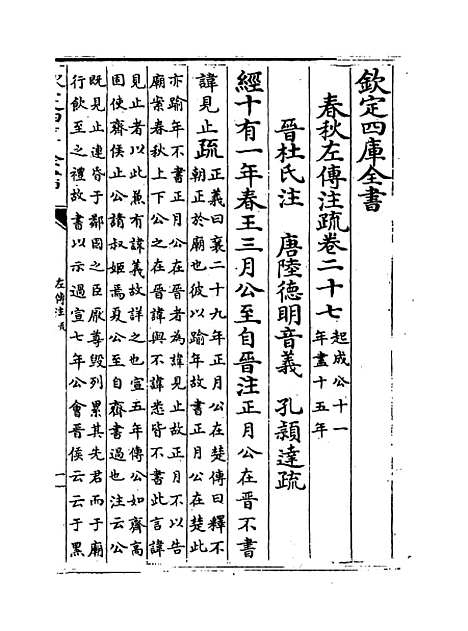 欽定四庫全書
春秋左傳注疏卷二十七起成公十一年盡十五年
晉杜氏注　唐陸德明音義　孔穎達疏
經十有一年春王三月公至自晉注正月公在晉不書
諱見止疏正義曰襄二十九年正月公在楚傳曰釋不朝正於廟也彼以踰年故書正月公在楚此
亦踰年不書正月公在晉者為諱見止故正月不以告廟案春秋上下公之在晉諱與不諱悉皆不書此言諱
見止者以此兼有諱義故詳之也宣五年傳公如齊高固使齊侯止公請叔姬焉夏公至自齊書過也注云公
既見止連昏于鄰國之臣厭尊毀列累其先君而于廟行飲至之禮故書以示過宣七年公會晉侯云云于黑
左傳注疏